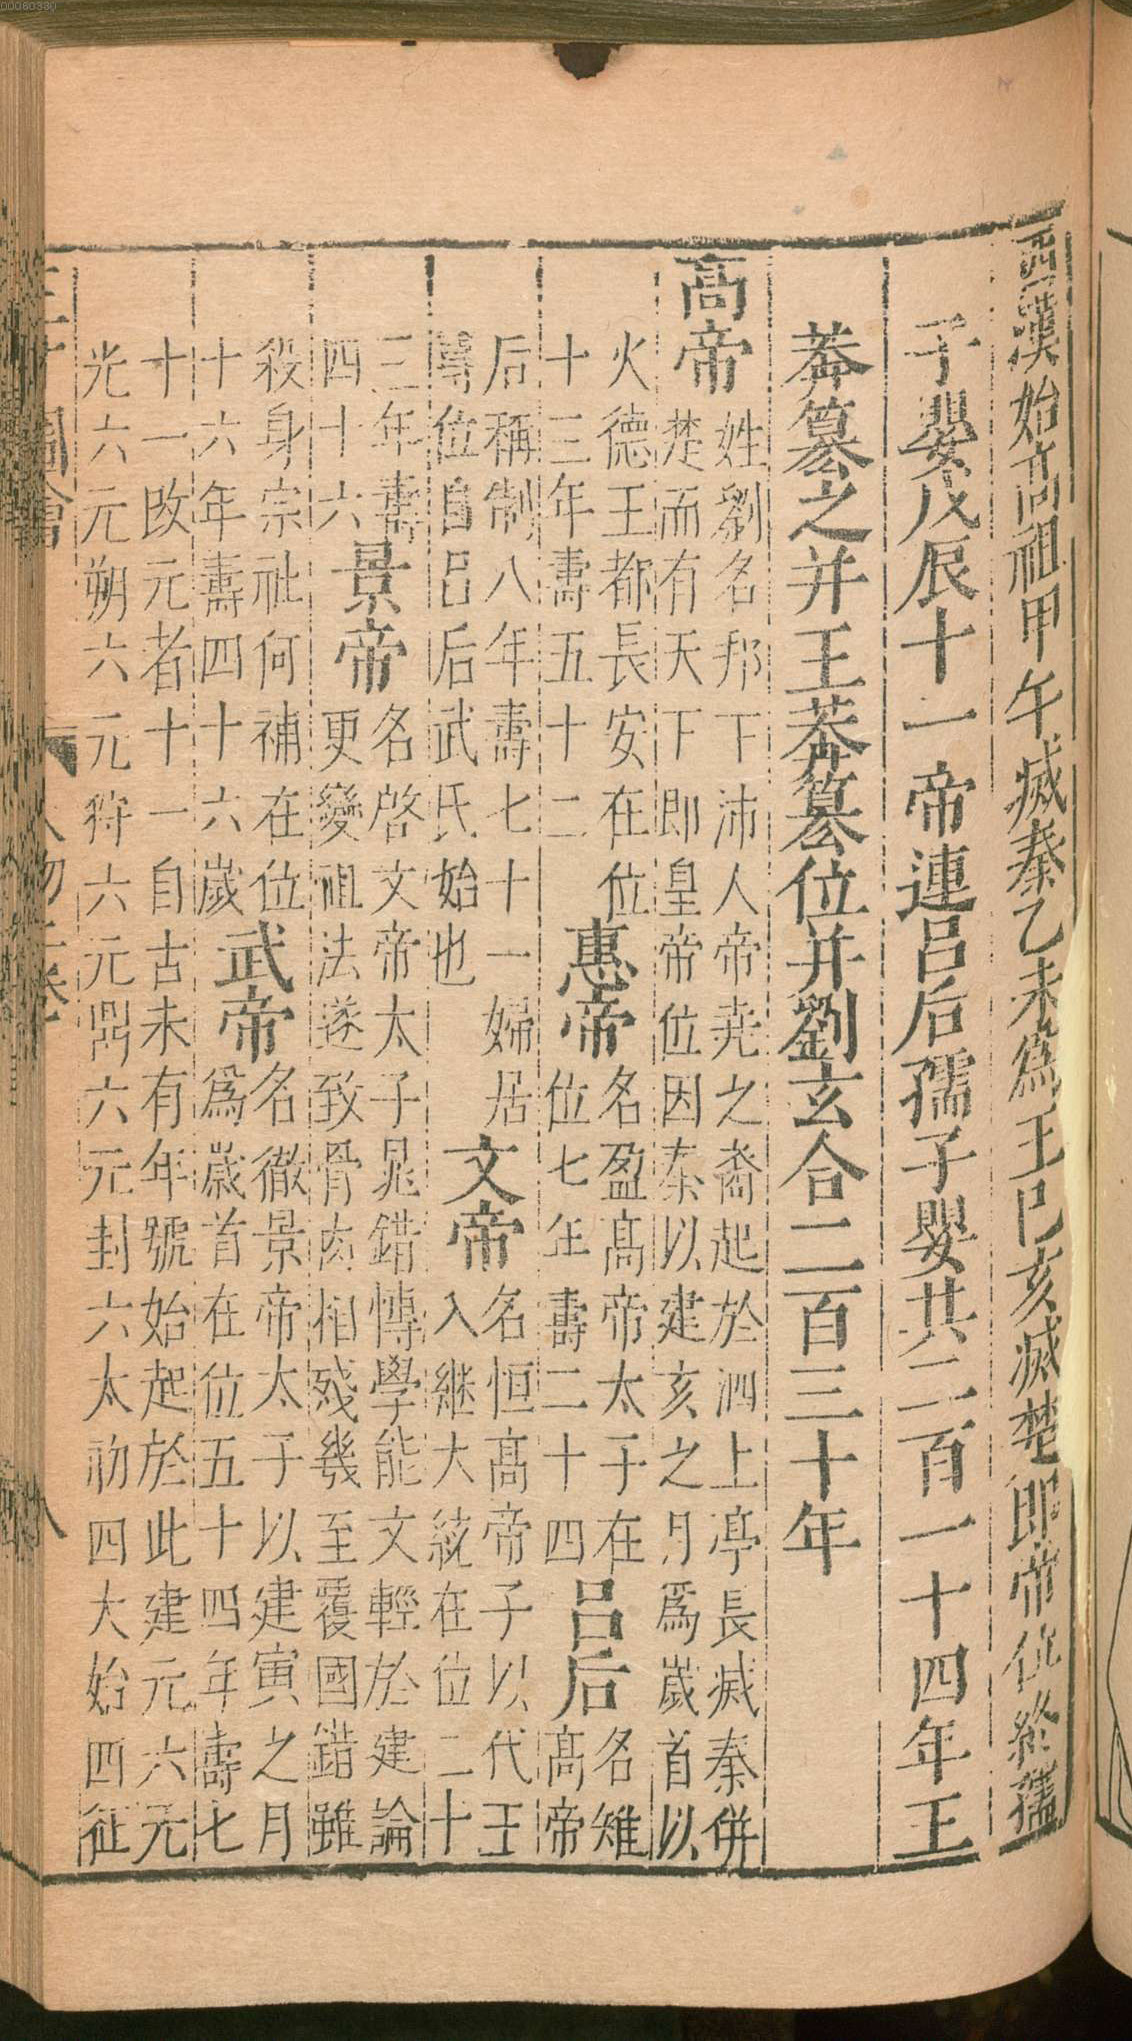 00080380
西漢始高祖甲午滅秦乙未爲王巳亥滅楚即帝位終孺
子嬰戊辰十一帝連吕后孺子嬰共二百一十四年王
莽篡之并王莽篡位并劉玄合二百三十年
高帝
姓劉名邦下沛人帝尭之裔起於泗上亭長滅秦併
楚而有天下即皇帝位因秦以建亥之月爲歲首以
火德王都長安在位
十三年壽五十二
惠帝
名盈髙帝太子在
位七年壽二十四
吕后
名雉髙帝
后稱制八年壽七十一婦居
尊位自吕后武氏始也
文帝
名恒髙帝子以代王
入継大統在位二十
三年壽
四十六
景帝
名啓文帝太子晁錯愽學能文輕於建論
更變祖法遂致骨肉相殘幾至覆國錯雖
殺身宗社何補在位
十六年壽四十六歲
武帝
名徹景帝太子以建寅之月
爲歲首在位五十四年壽七
十一改元者十一自古未有年號始起於此建元六元
光六元朔六元狩六元鼎六元封六太初四大始四征
三才圖會
人物二卷
八